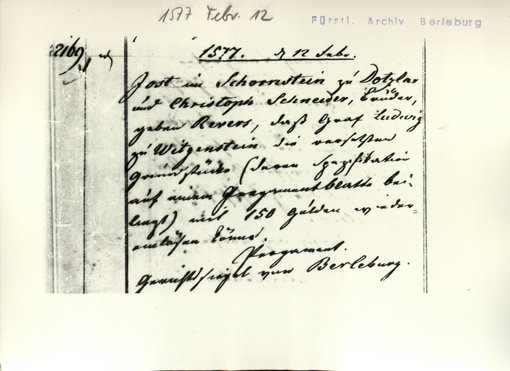 1577 Febr. 12
Fürstl. Archiv Berleburg
2169
1577. d 12 Febr.
Jost im Schornstein zu Dotzlar
und Christoph Schneider, Brüder,
geben Revers, daß Graf Ludwig
zu Witgenstein die versetzten
Grundstücke (deren Spezifikation
auf einem Pergamentblatte bei-
liegt) mit 150 Gulden wieder-
einlösen könne.
Pergament.
Gerichtssiegel von Berleburg.